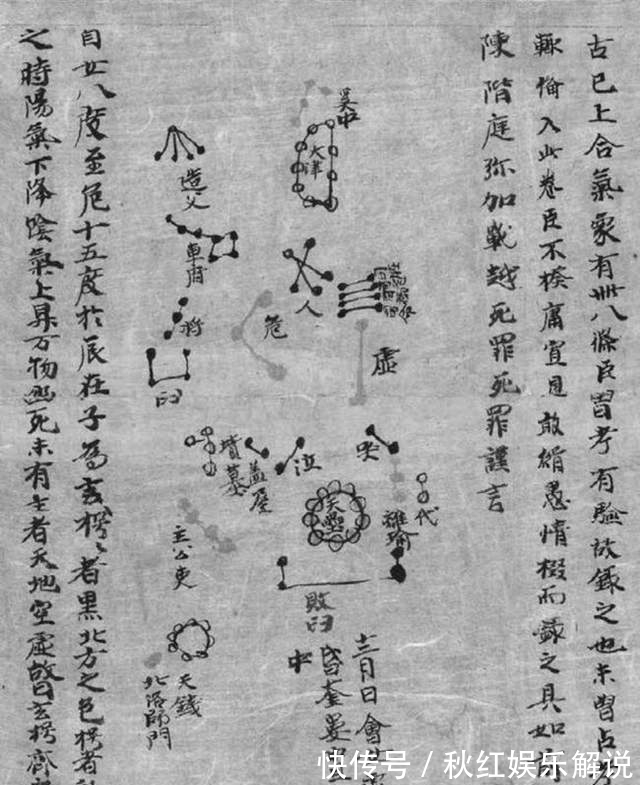 古已上合氣象有卌八條臣曾考有驗故錄之也未曾占考
輒備入此卷臣不揆庸寘見敢緝愚情掇而錄之具如前
陳階庭弥加戰越死罪死罪謹言
天津
造父
車府
人
危
虛
杵
臼
哭
泣
蓋屋
墳墓
代
天壘
敗臼
主公吏
天錢
北洛師門
十二月日會
昏奎婁
中
自廿八度至危十五度於辰在子為玄枵玄枵者黑北方之色枵者
之時陽氣下降陰氣上昇万物幽死未有生者天地空虛曰玄枵齊
快传号 / 秋红娱乐解说